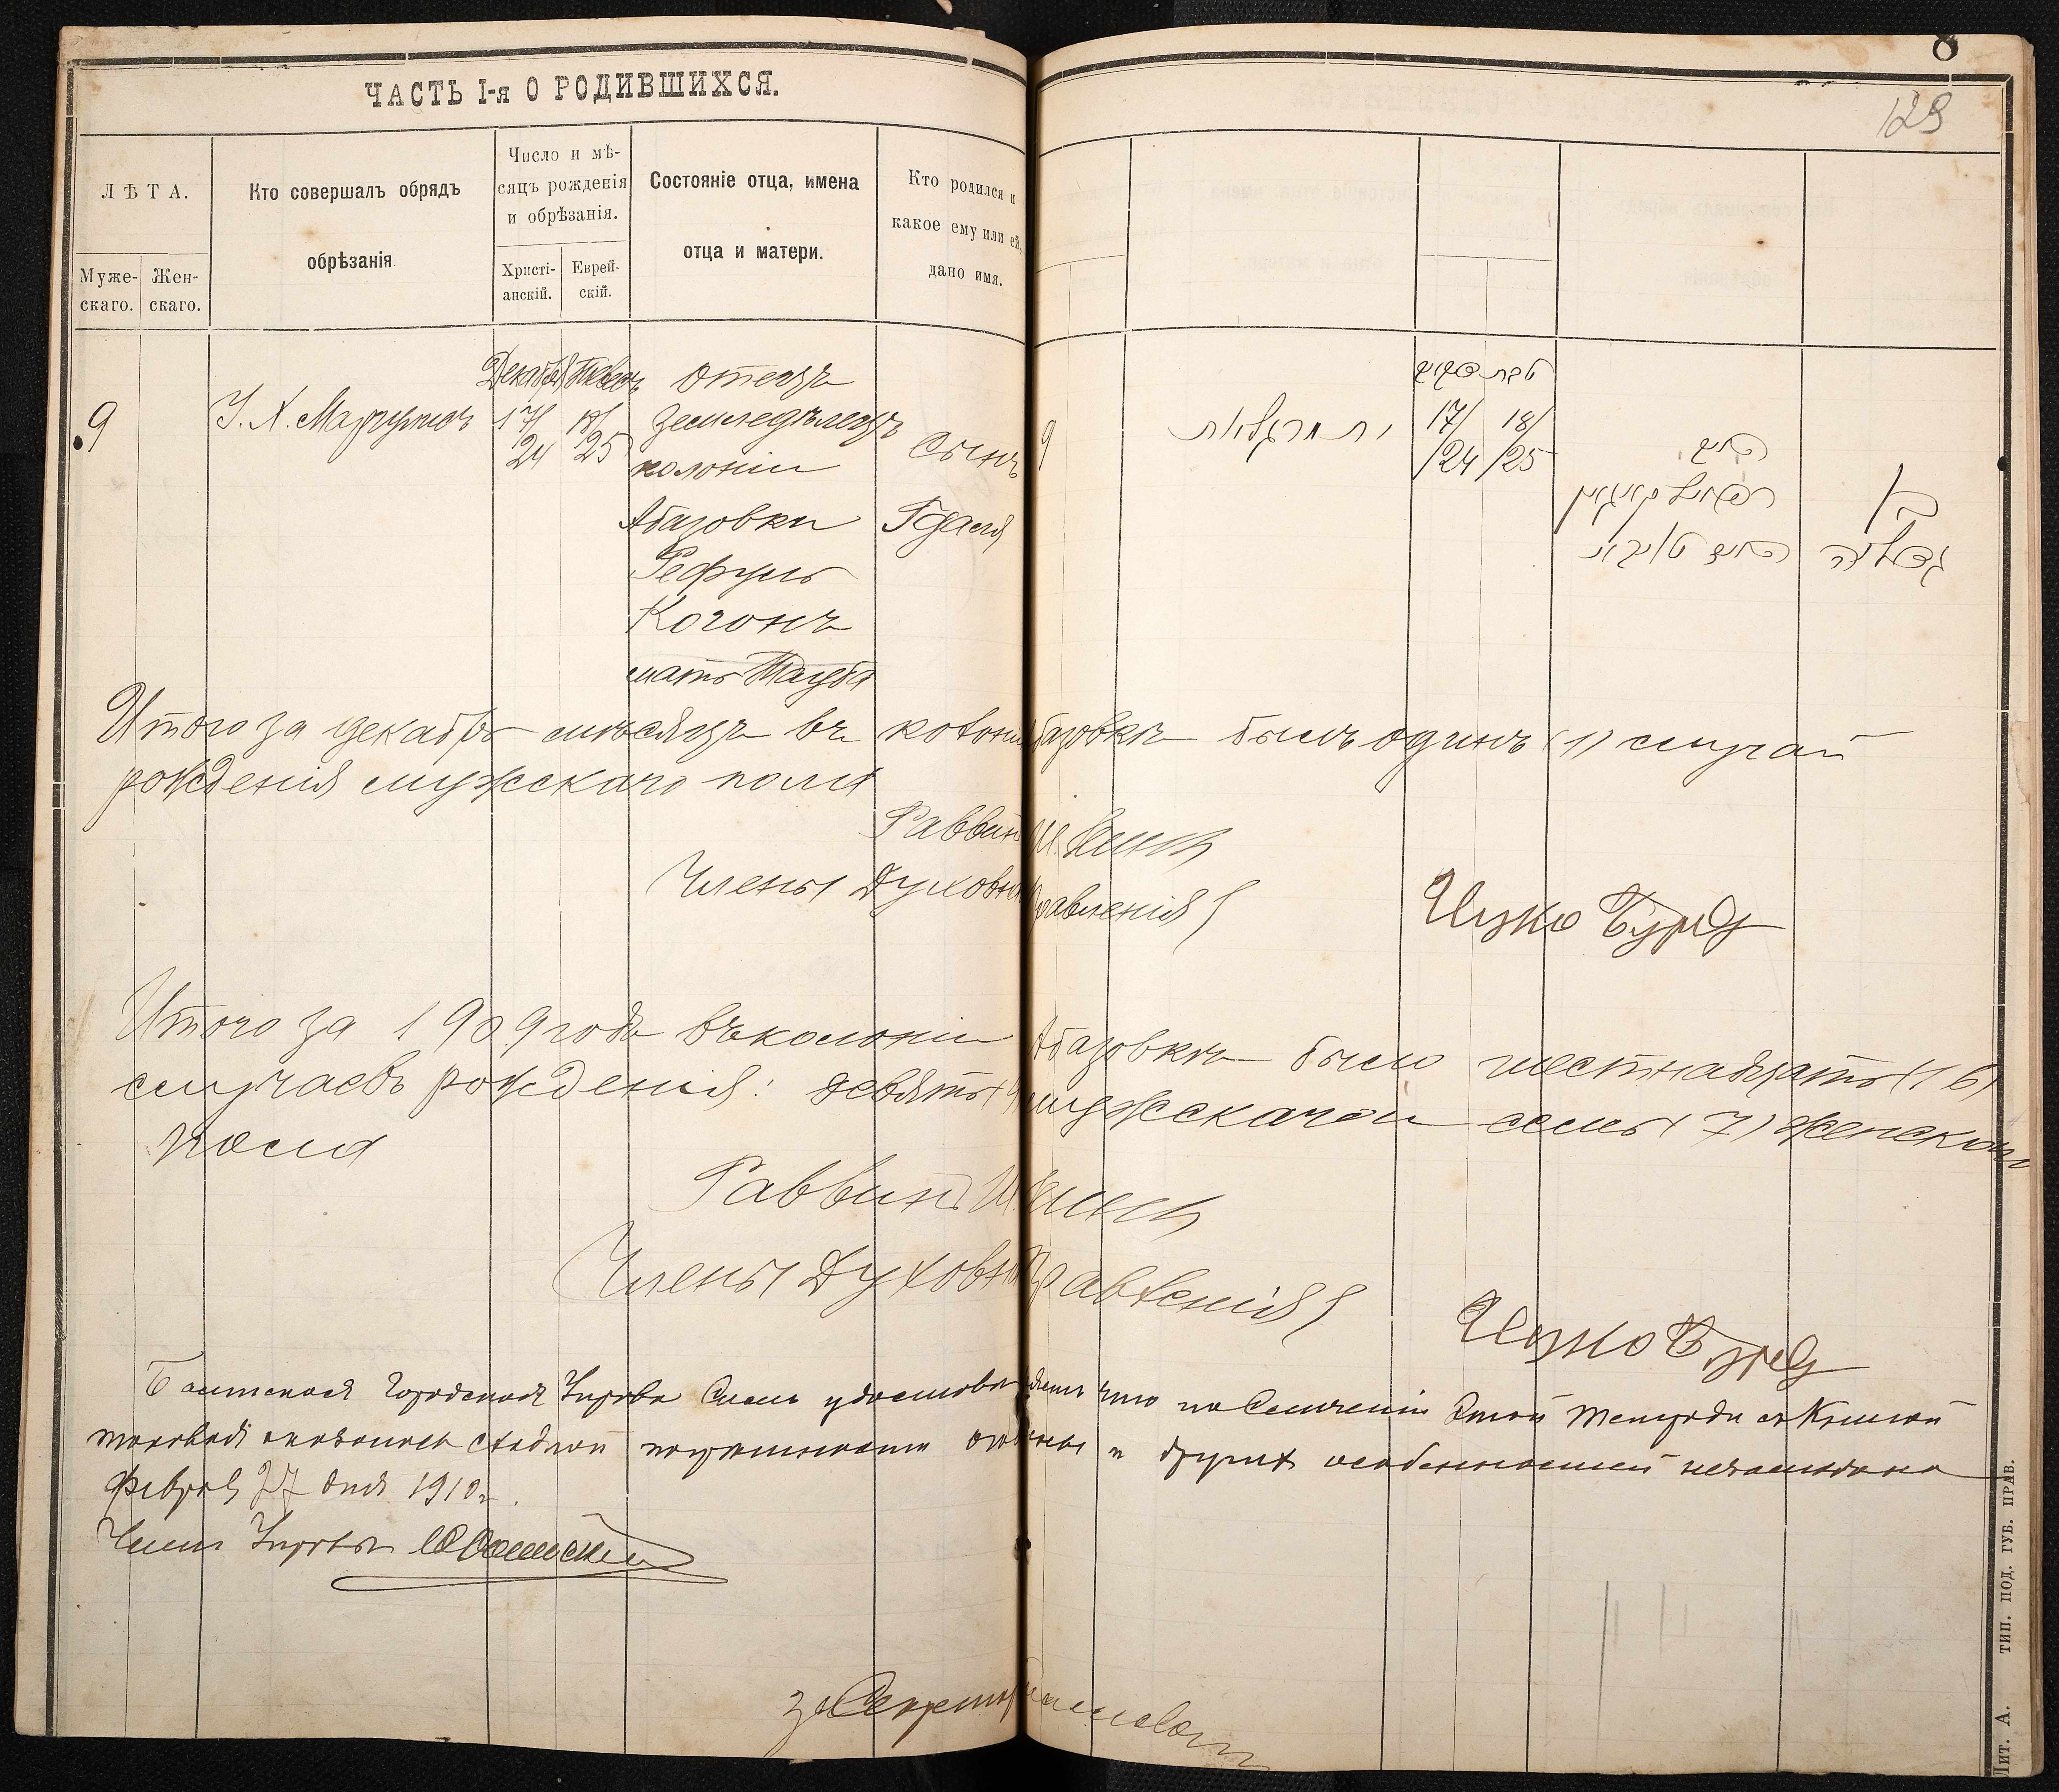 ЧАСТЬ I-я О РОДИВШИХСЯ.
8
129
ЛѢТА.
Муже-
скаго.
Жен-
скаго.
Кто совершалъ обрядъ
обрѣзанія
Число и мѣ-
сяцъ рожденія
и обрѣзанія.
Христі-
анскій.
Еврей-
скій.
Состояніе отца, имена
отца и матери.
Кто родился и
какое ему или ей,
дано имя.
9
Декабря
17/
24
18/
25
Отецъ
земледѣлецъ
колоніи
Абазовки
Рефуль
Когонъ
мать Тауба
Сынъ
Гдаля
9
17/ 18/
/24 /25
רפאל קאגאן
בן
גדליה
Итого за декабрь мѣсяцъ въ колоніи Абазовкѣ былъ одинъ (1) случай
рожденія мужскаго пола
Раввинъ
Члены Духовн Правленія
Ицко
Итого за 1909 годъ въ колоніи Абазовкѣ было шестнадцать (16)
случаевъ рожденія: девять (9) мужскаго и семь (7) женскаго
пола
Раввинъ
Члены Духовн Правленія
Ицко
Балтская Городская Управа Симъ удостовѣряетъ что по Сличеніи Этой Тетради съ Книгой
таковая оказалась сходной и других особенностей
Февраля 27 дня 1910 г.
Членъ Управы
за Секретаря
Лит. А. ТИП. ПОД. ГУБ. ПРАВ.